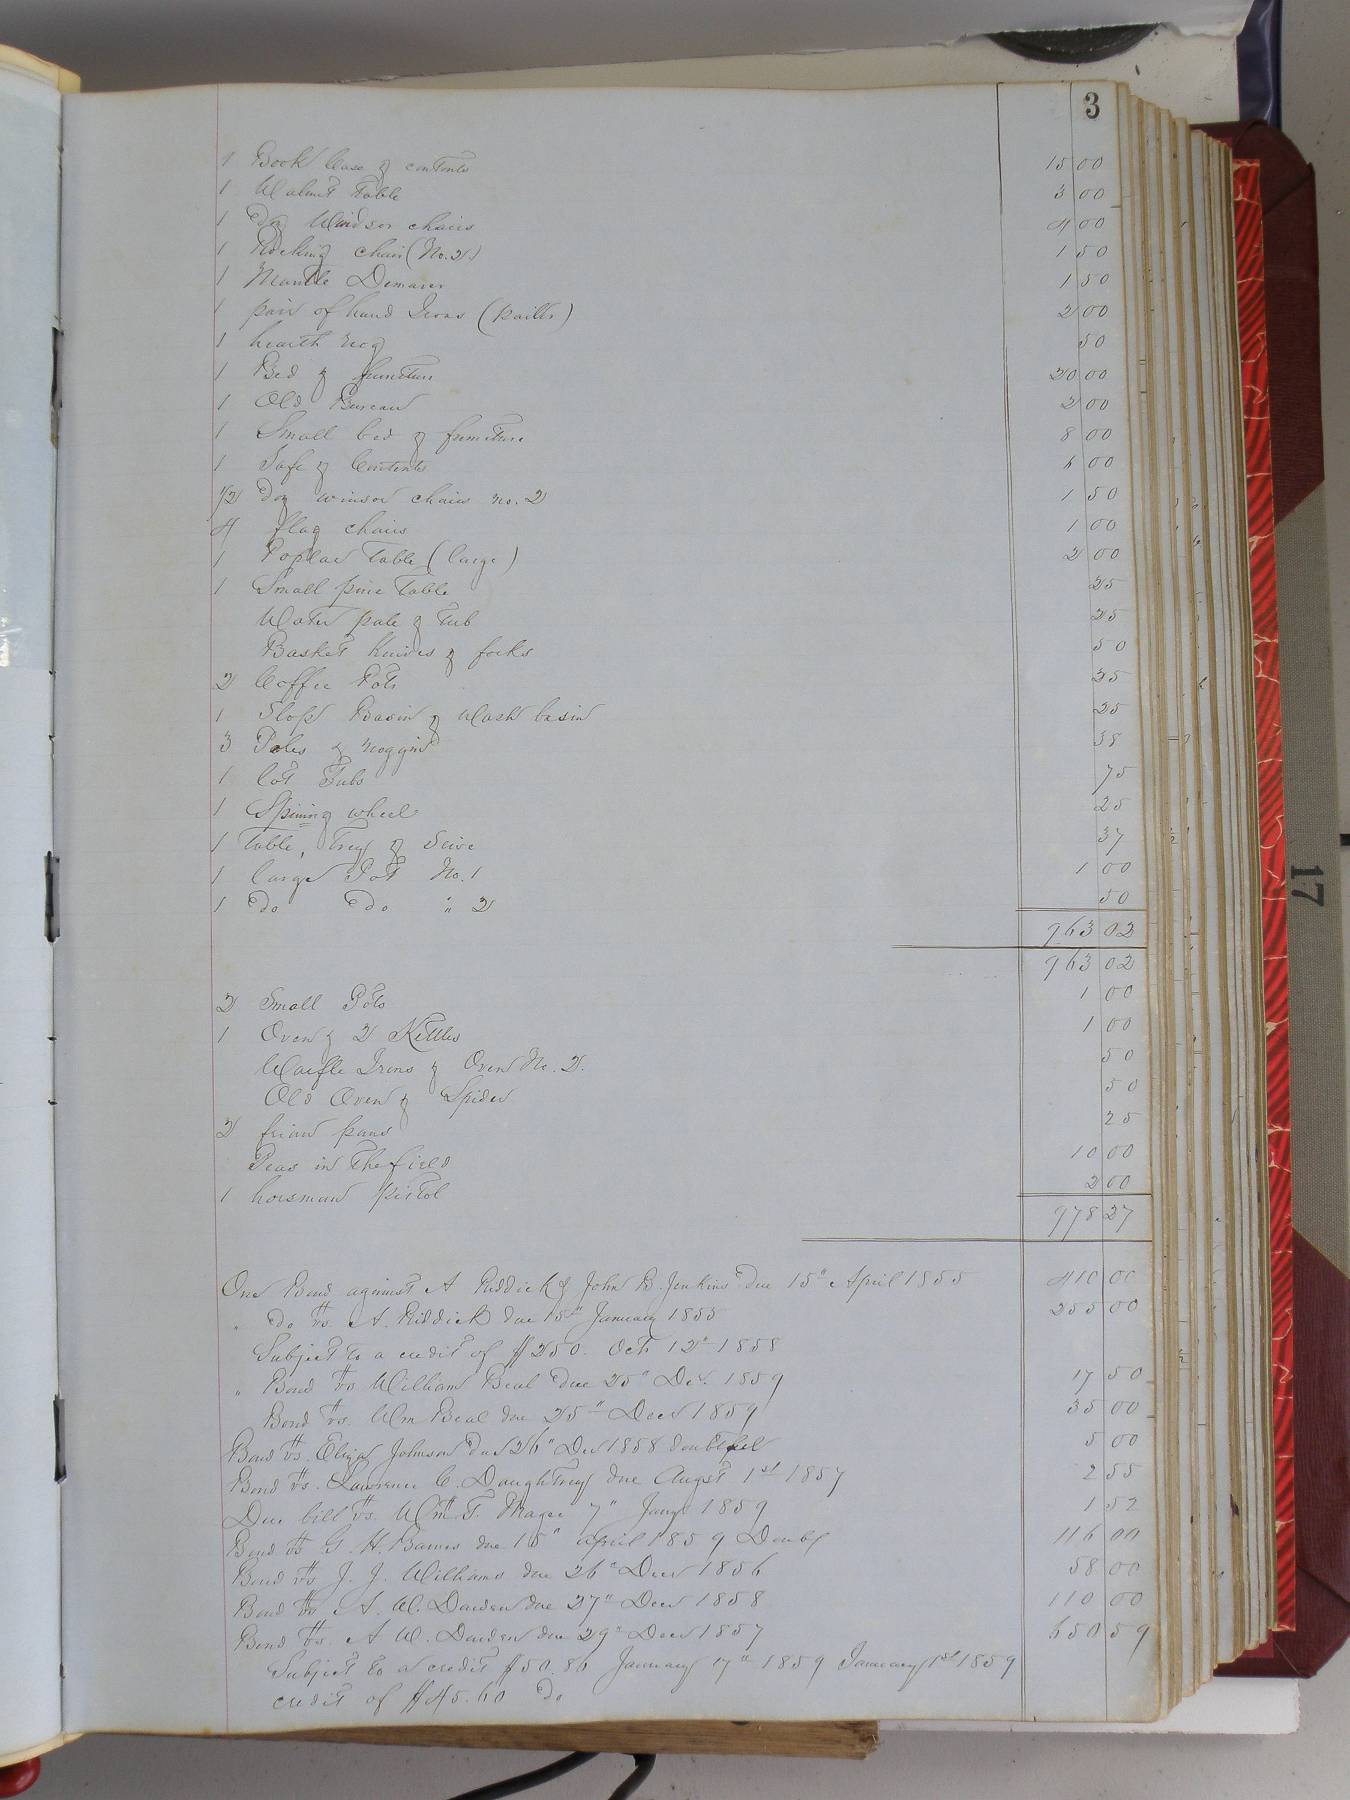 3
1 Book Case & contents 15 00
1 Walnut Table 3 00
1 Doz Windsor chairs 4 00
1 Rocking chair (No. 2) 1 50
1 Mantle 1 50
1 pair of hand Irons 2 00
1 hearth rug 50
1 Bed & furniture 20 00
1 Old Bureau 2 00
1 Small bed & furniture 8 00
1 Safe & Contents 6 00
1/2 Doz winsor chairs no. 2 1 50
4 flag chairs 1 00
1 Poplar Table (large) 2 00
1 Small pine Table 25
Water pale & Tub 25
Basket knives & forks 50
2 Coffee Pots 25
1 Slop Basin & Wash basin 25
3 Pales & noggin 38
1 lot Tubs 75
1 Spining wheel 25
1 Table, Tray & Seive 37
1 large Pot No. 1 1 00
1 Do Do " 2 50
963 02
963 02
2 Small Pots 1 00
1 Oven & 2 Kettles 1 00
Waffle Irons & Oven No. 2. 50
Old Oven & Spider 50
2 frian pans 25
Peas in the field 10 00
1 horsman pistol 2 00
978 27
One Bond against A Riddick & John B. Jenkins due 15" April 1855 410 00
" do vs. A. Riddick due 15" January 1855 255 00
Subject to a credit of $250. Oct 12" 1858
" Bond vs William Beal due 25" Dec. 1859 17 50
Bond vs. Wm Beal due 25" Decr 1859 35 00
Bond vs. Eliza Johnson due 26" Dec 1858 doubtful 5 00
Bond vs. Lawrence C. Daughtrey due Augst 1st 1857 2 55
Due bill vs. Wm T. Magee 7" Jany 1859 1 52
Bond vs G. H. Barnes due 15" April 1859 Doubf 116 00
Bond vs J. J. Williams due 26" Decr 1856 58 00
Bond vs A. W. Darden due 27" Decr 1858 110 00
Bond vs. A W. Darden due 29" Decr 1857 650 59
Subject to a credit $50.86 January 17" 1859 January 1st 1859
credit of $45.60 do
17